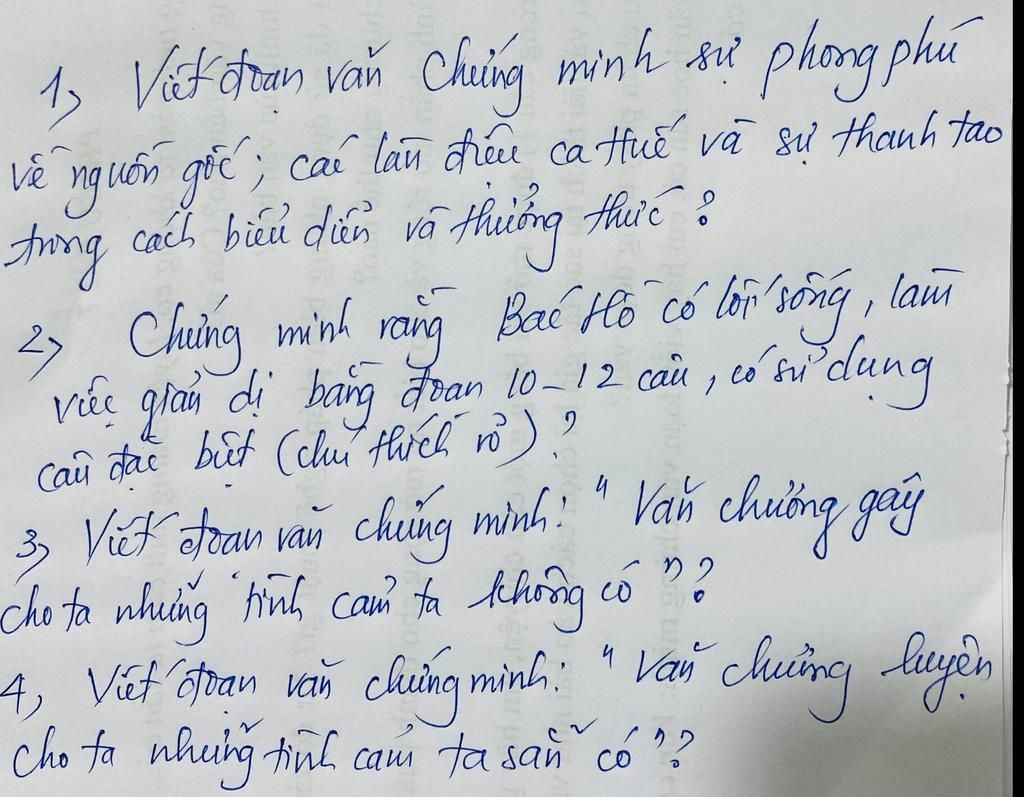 1, Viết đoạn văn chứng minh sự phong phú
về nguồn gốc; các làn điệu ca Huế và sự thanh tao
trong cách biểu diễn và thưởng thức?
2, Chứng minh rằng Bác Hồ có lối sống, làm
việc giản dị bằng đoạn 10-12 câu, có sử dụng
câu đặc biệt (chú thích rõ)?
3, Viết đoạn văn chứng minh: "Văn chương gây
cho ta những tình cảm ta không có"?
4, Viết đoạn văn chứng minh: "Văn chương luyện
cho ta những tình cảm ta sẵn có"?